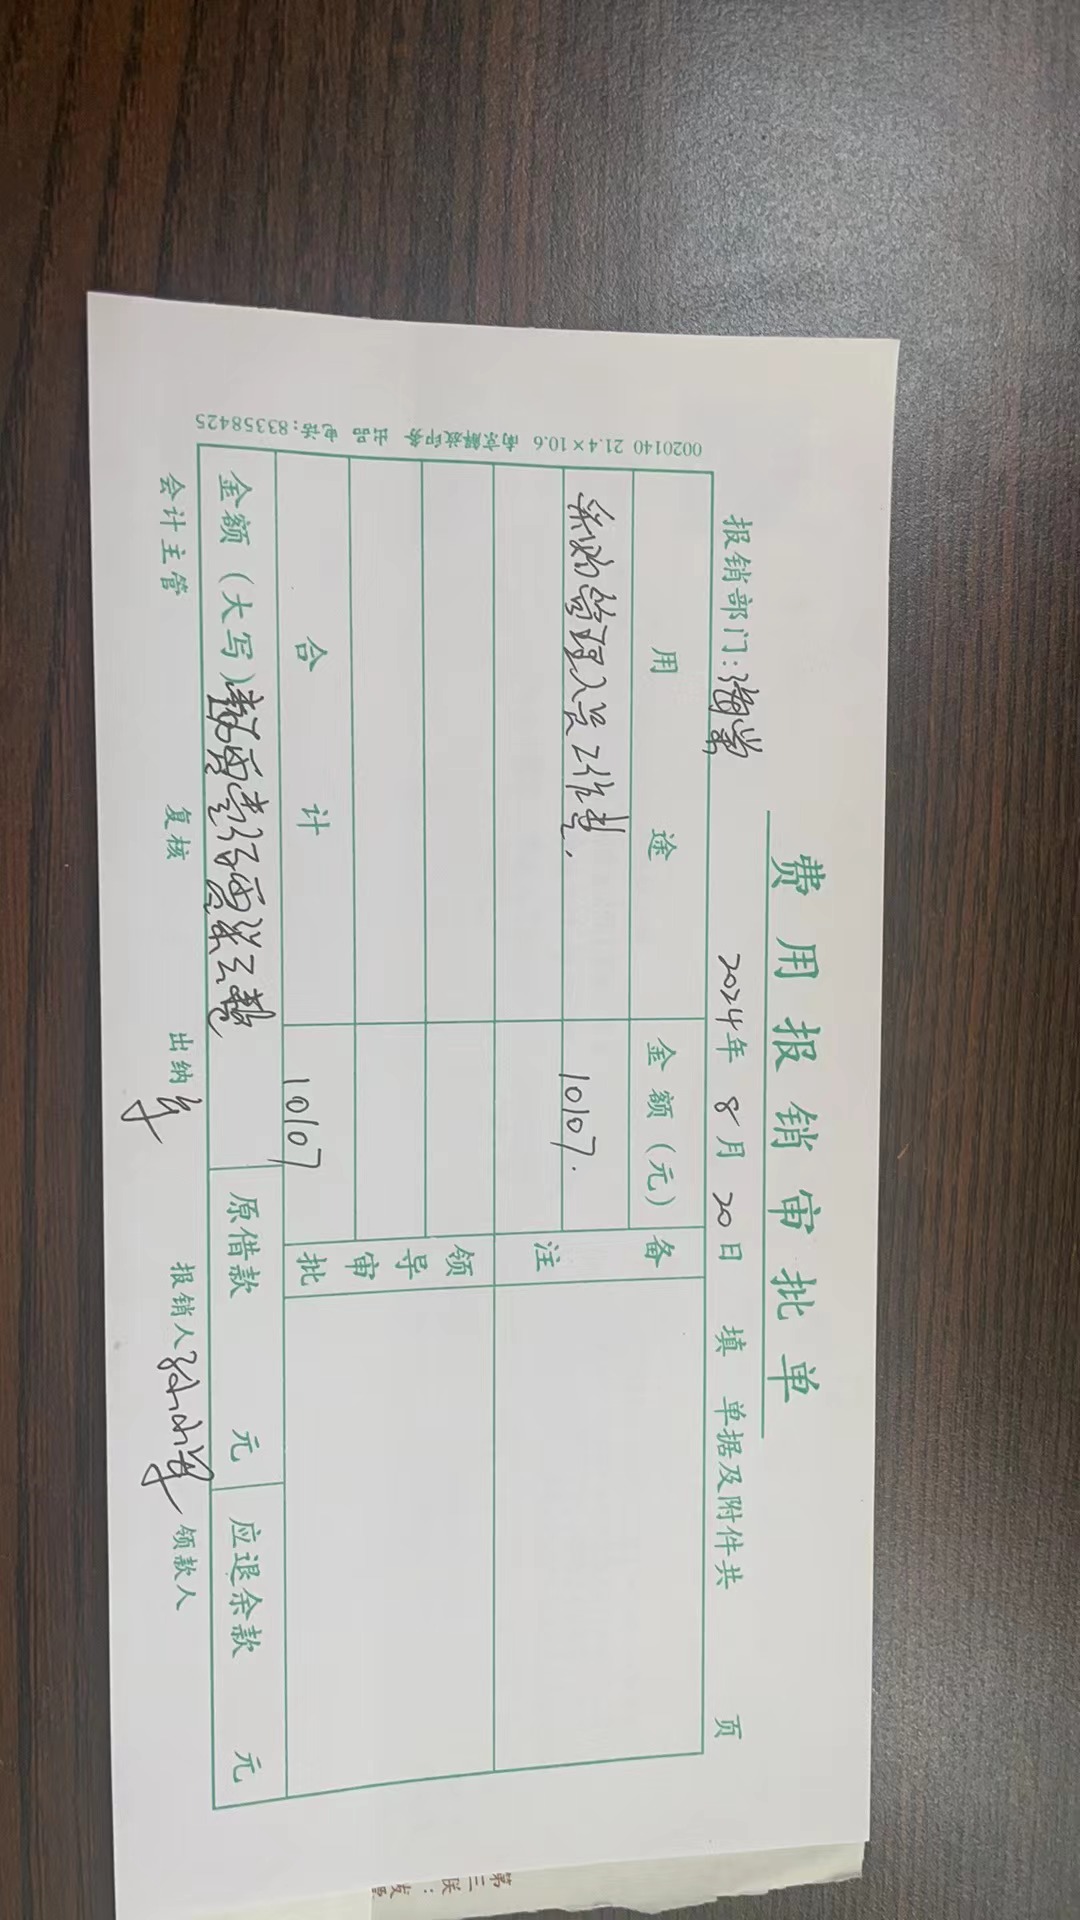 费用报销审批单
报销部门：海棠 2024年 8月 20日 填 单据及附件共 页
用途 金额（元） 备注
采购管理人员工作费. 10107.
领导审批
合计 10107
金额（大写） 元整 原借款 元 应退余款 元
会计主管 复核 出纳 报销人 领款人
0020140 21.4×10.6 南京解放印务 出品 电话:83358425
第三联：发票